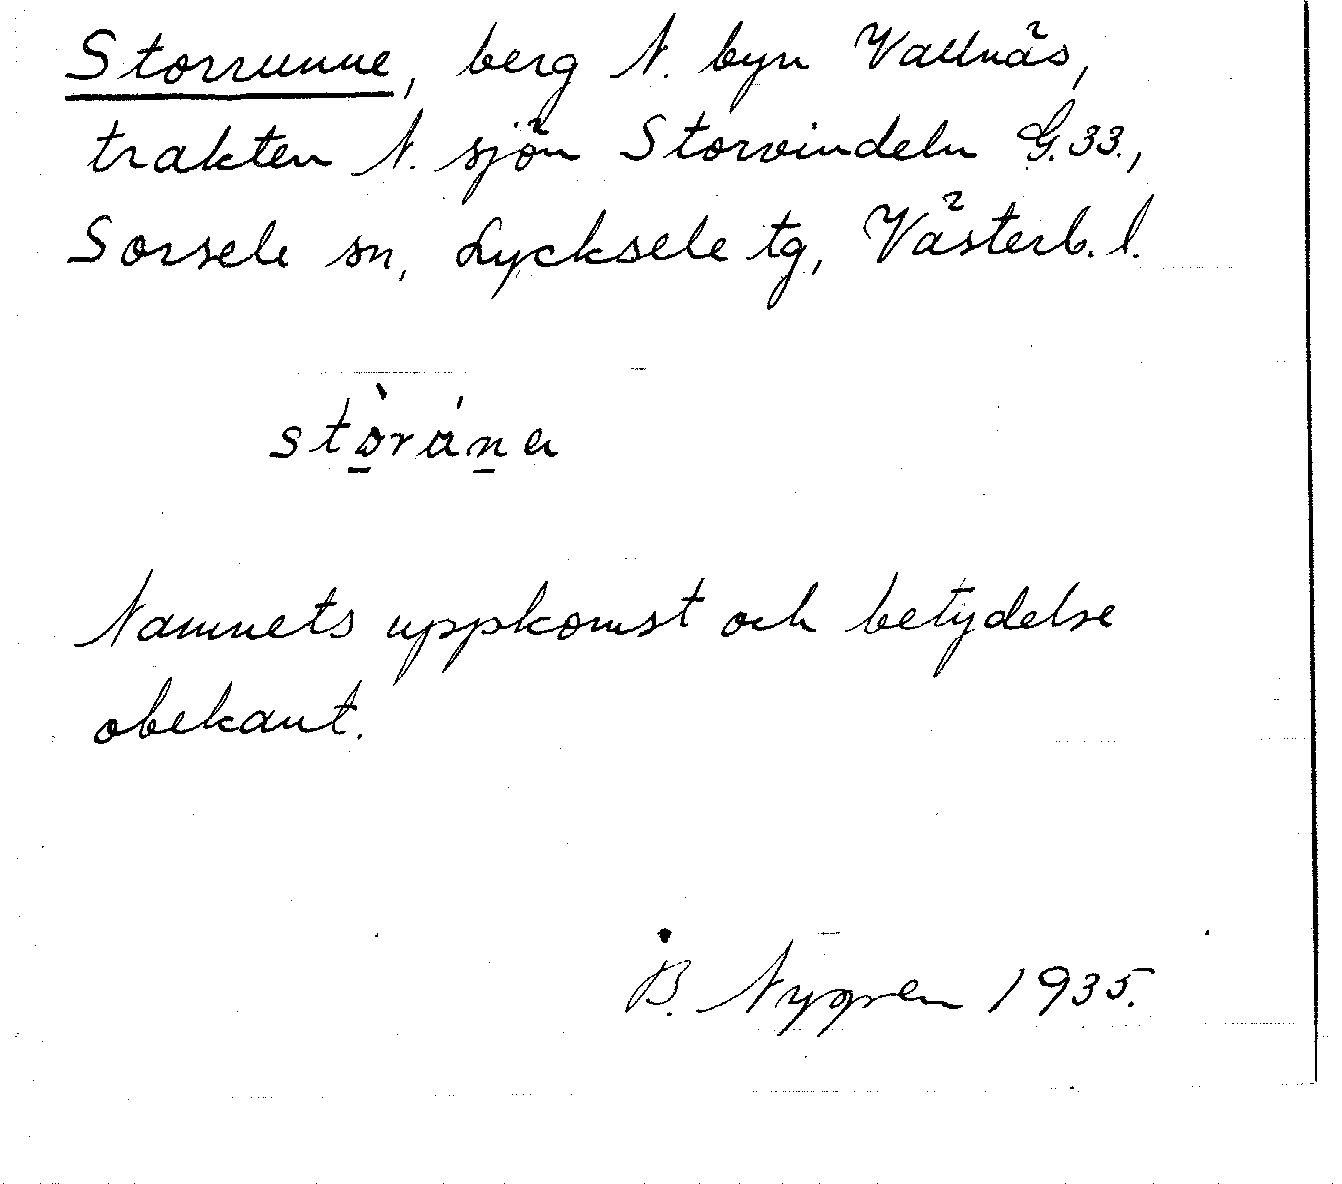 Storrunne, berg N. byn Vallnäs,
trakten N. sjön Storvindeln G.33.,
Sorsele sn, Lycksele tg, Västerb. l.
Namnets uppkomst och betydelse
obekant.
B. Nygren 1935.